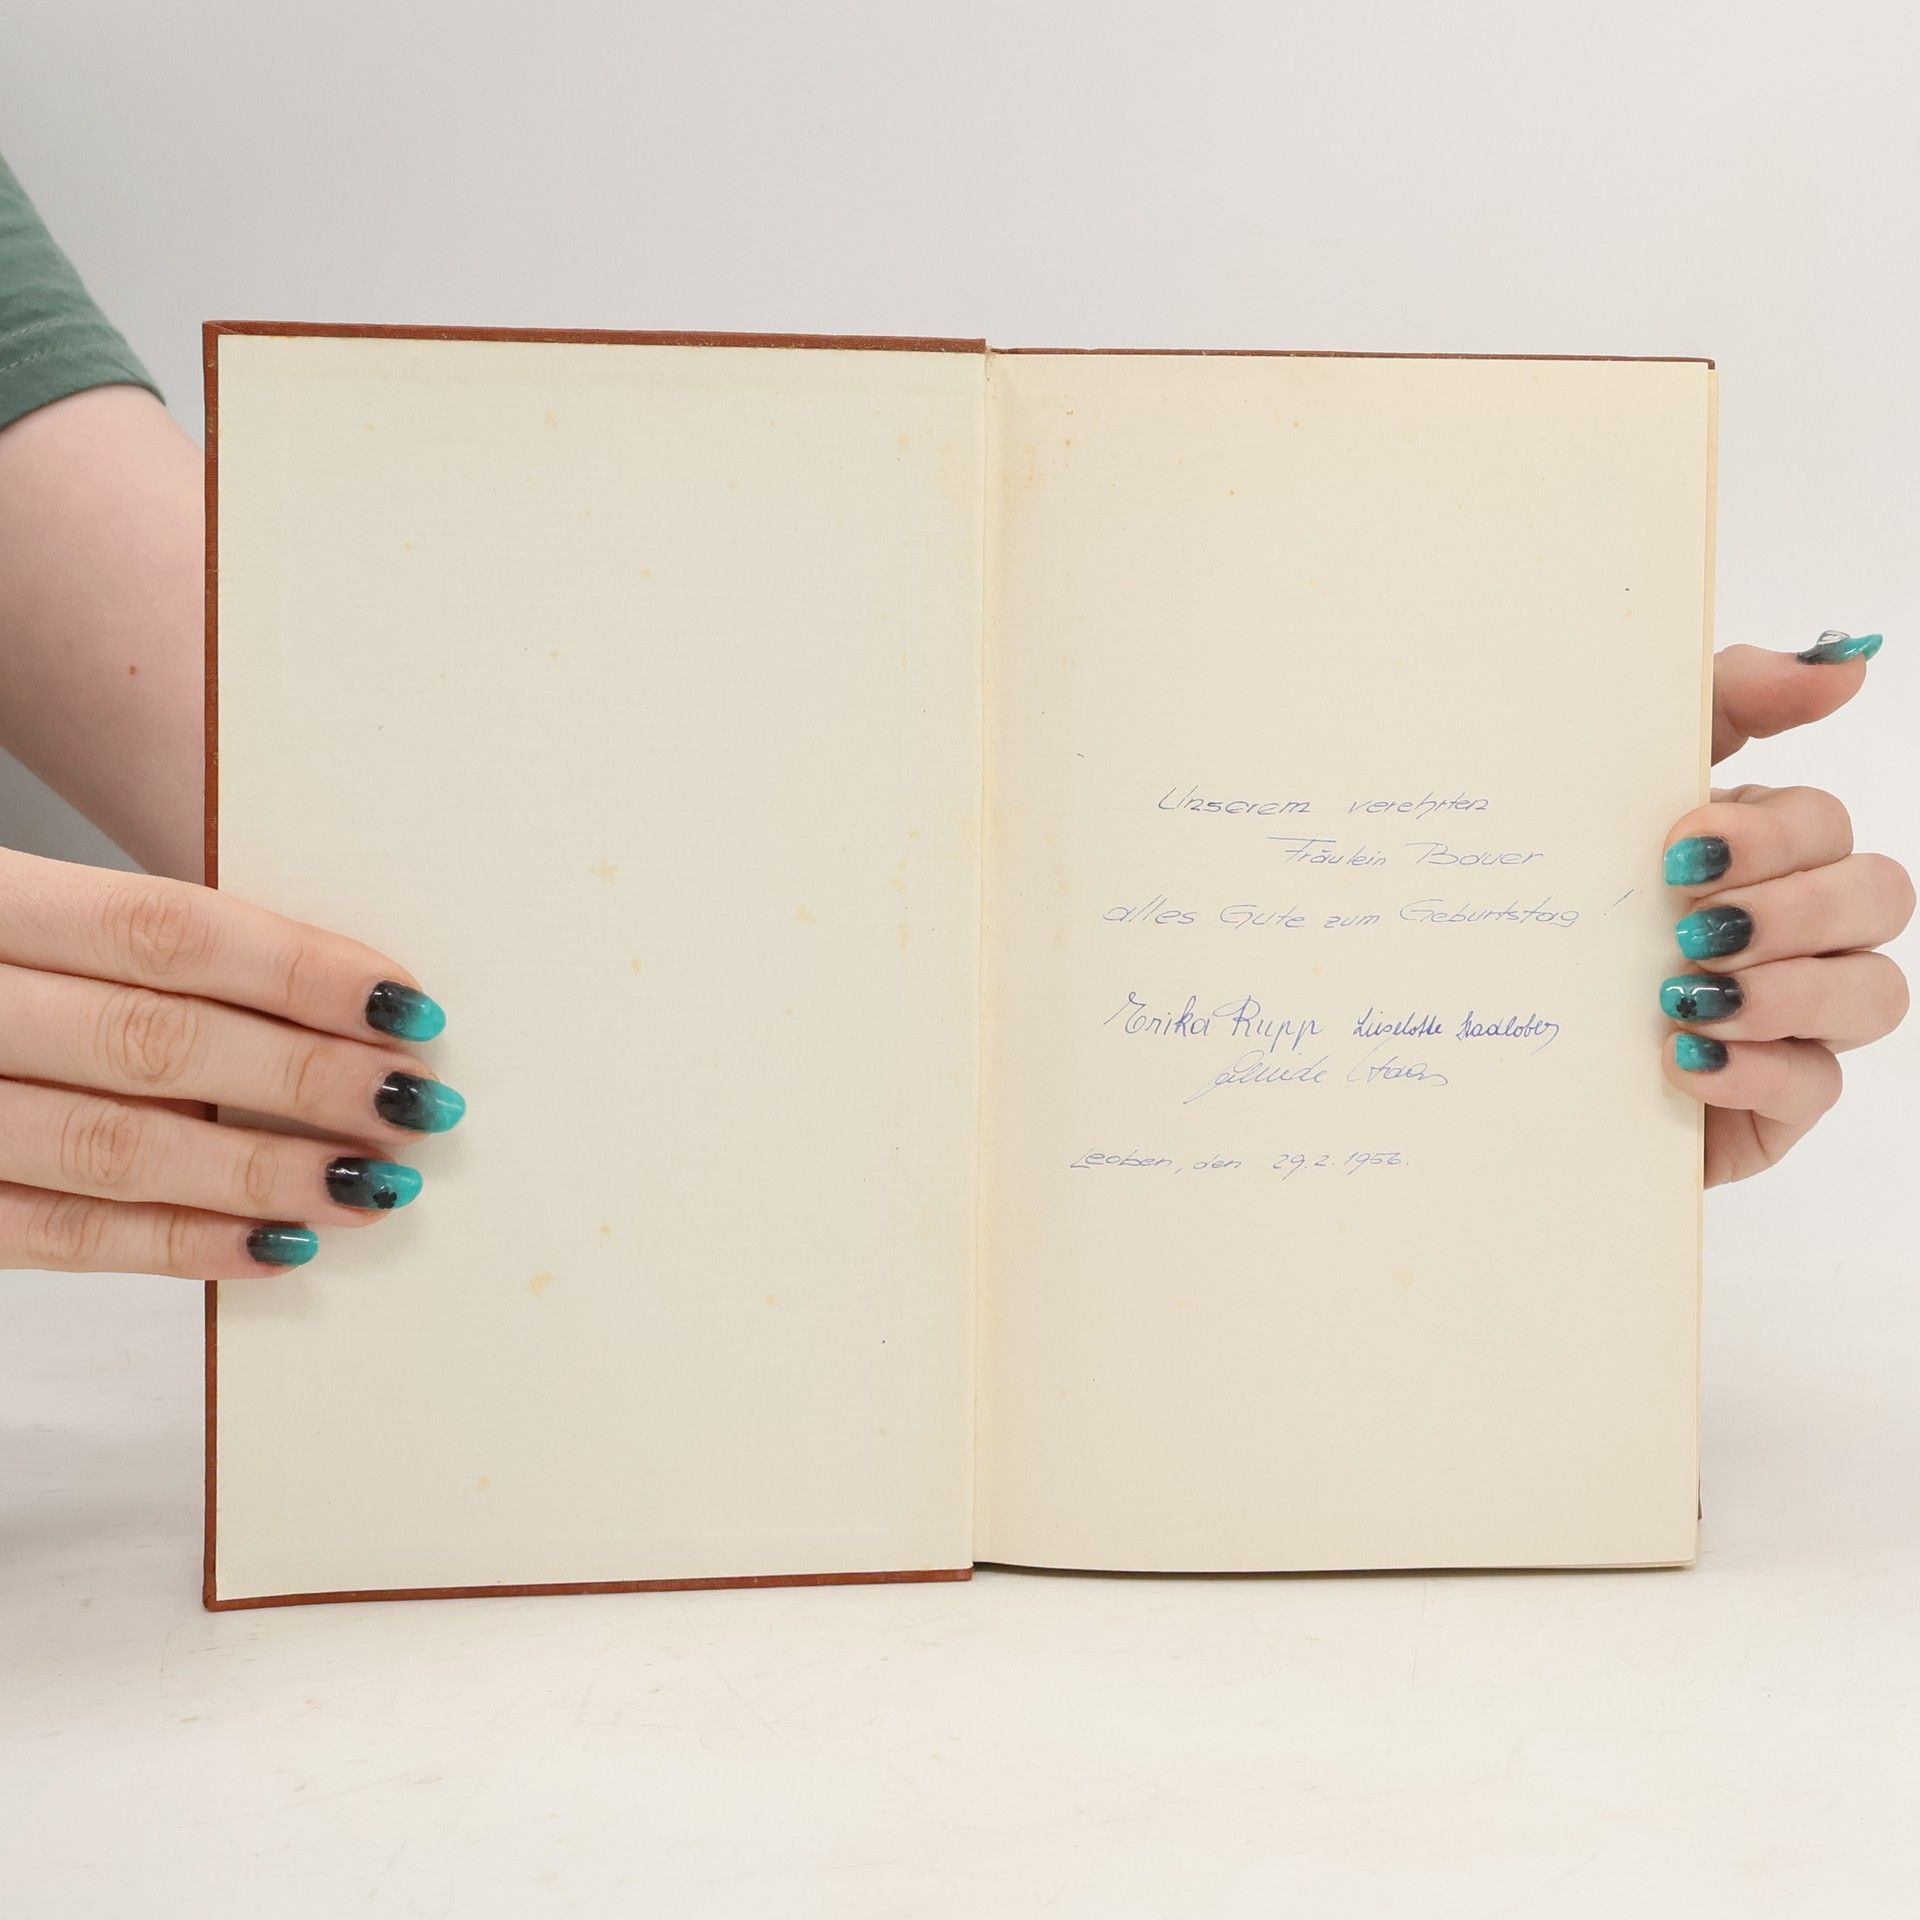 Unserem verehrten
Fräulein Bauer
alles Gute zum Geburtstag!
Erika Rupp Lieselotte Stadlober
Haas
Leoben, den 29.2.1956.